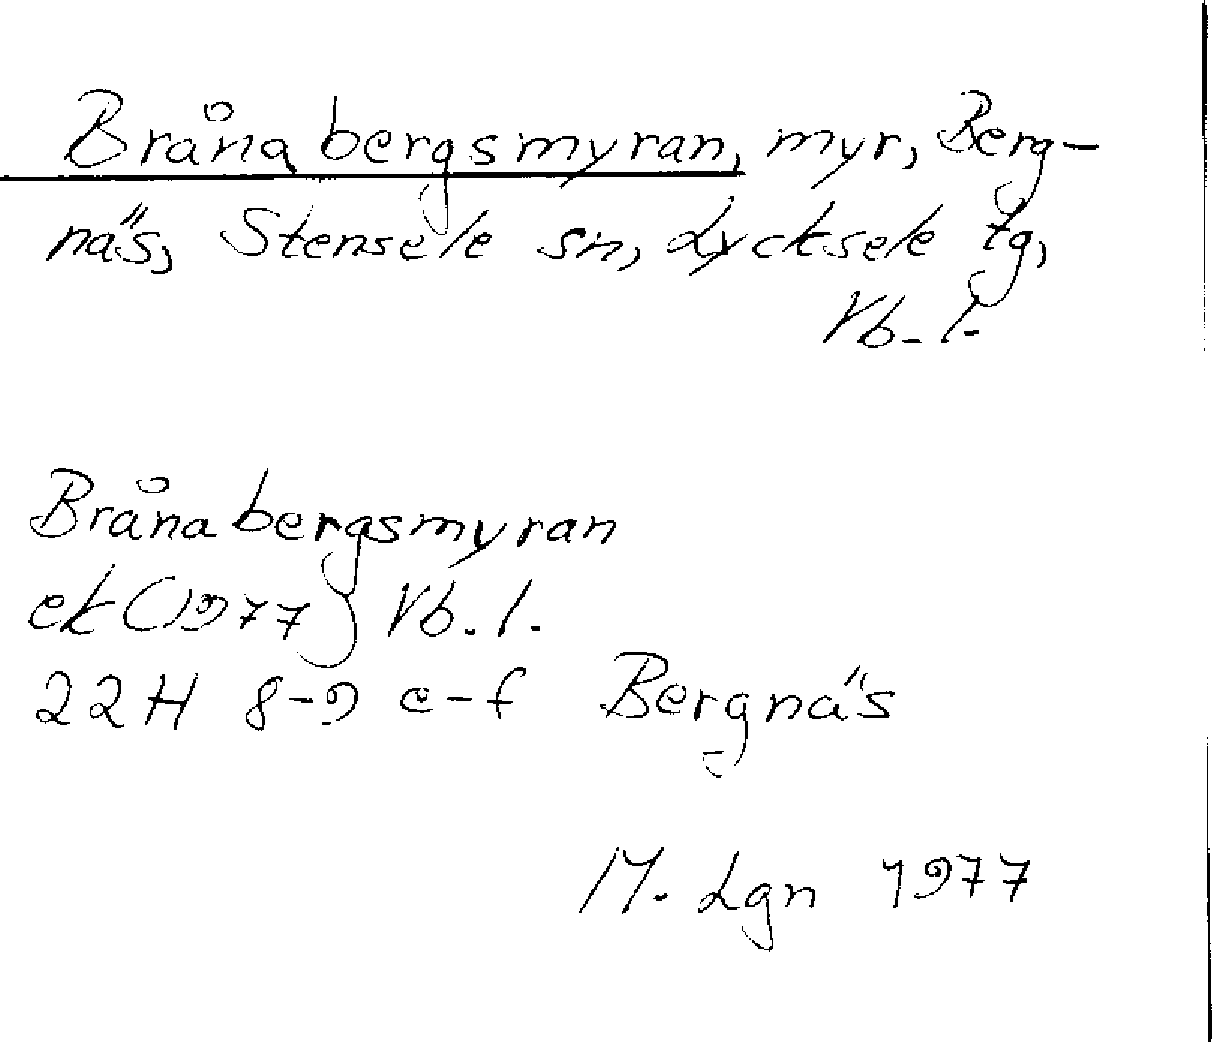 Brånabergsmyran, myr, Berg-
näs, Stensele sn, Lycksele tg,
Vb. l.
Brånabergsmyran
ek (1977) Vb. l.
22H 8-9 e-f Bergnäs
M. Lgn 1977